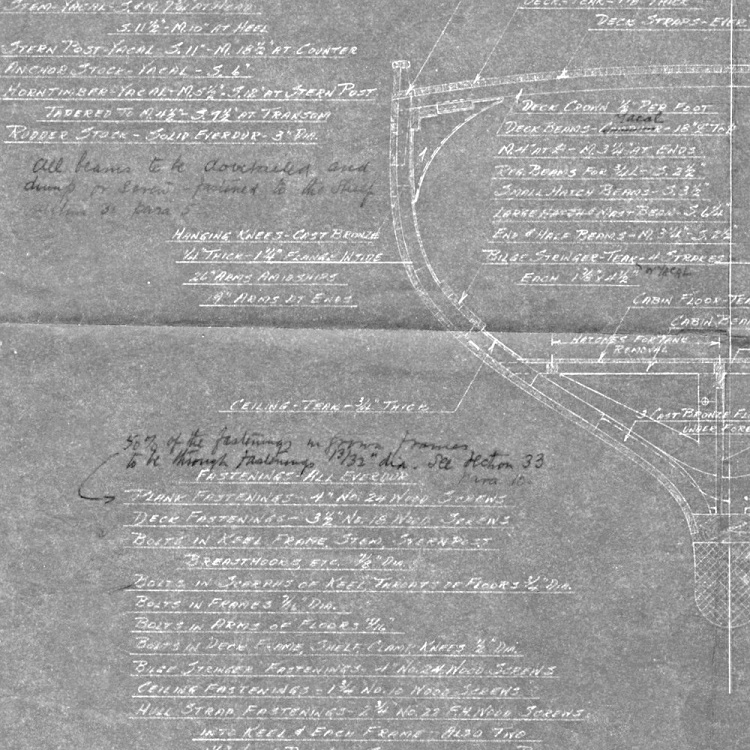 STEM-YACAL-
S. 11½"-M. 10" AT HEEL
STERN POST-YACAL-S. 11"-M. 18½" AT COUNTER
ANCHOR STOCK-YACAL-S. 6"
HORNTIMBER-YACAL-M. 5½"-S. 12" AT STERN POST
TAPERED TO M. 4¾"-S. 7½" AT TRANSOM
RUDDER STOCK-SOLID EVERDUR-3" DIA.
All beams to be dovetailed and
to the shelf
DECK-TEAK-
DECK STRAPS-EVER
DECK CROWN ⅜" PER FOOT
Yacal
DECK BEAMS- -18"
M. 4" AT ℄-M. 3¼" AT ENDS
REG. BEAMS FOR ¾L-S. 2½"
SMALL HATCH BEAMS-S. 3½"
LARGE HATCH & MAST BEAM-S. 4¼"
END & HALF BEAMS-M. 3¼"-S. 2½"
BILGE STRINGER-TEAK-4 STRAKES
EACH 1⅞" x 4½"
or Yacal
HANGING KNEES-CAST BRONZE
¼" THICK-1¼" FLANGE INSIDE
26" ARMS AMIDSHIPS
19" ARMS AT ENDS
CABIN FLOOR-TE
CABIN BEA
HATCHES FOR TANK
REMOVAL
CEILING-TEAK-¾" THICK
3 CAST BRONZE FL
UNDER FORE
50% of the fastenings in grown frames
to be through fastenings 13/32" dia. See Section 33
Para. 10.
FASTENINGS-ALL EVERDUR
PLANK FASTENINGS-4" NO. 24 WOOD SCREWS
DECK FASTENINGS-3½" NO. 18 WOOD SCREWS
BOLTS IN KEEL FRAME, STEM, STERNPOST
BREASTHOOKS, ETC. DIA.
BOLTS IN SCARPHS OF KEEL, THROATS OF FLOORS ¾" DIA.
BOLTS IN FRAMES DIA.
BOLTS IN ARMS OF FLOORS
BOLTS IN DECK FRAME, SHELF, CLAMP, KNEES ½" DIA.
BILGE STRINGER FASTENINGS-4" NO. 24 WOOD SCREWS
CEILING FASTENINGS-1¾" NO. 10 WOOD SCREWS
HULL STRAP FASTENINGS-2¾" NO. 22 F.H. WOOD SCREWS
INTO KEEL & EACH FRAME-ALSO TWO